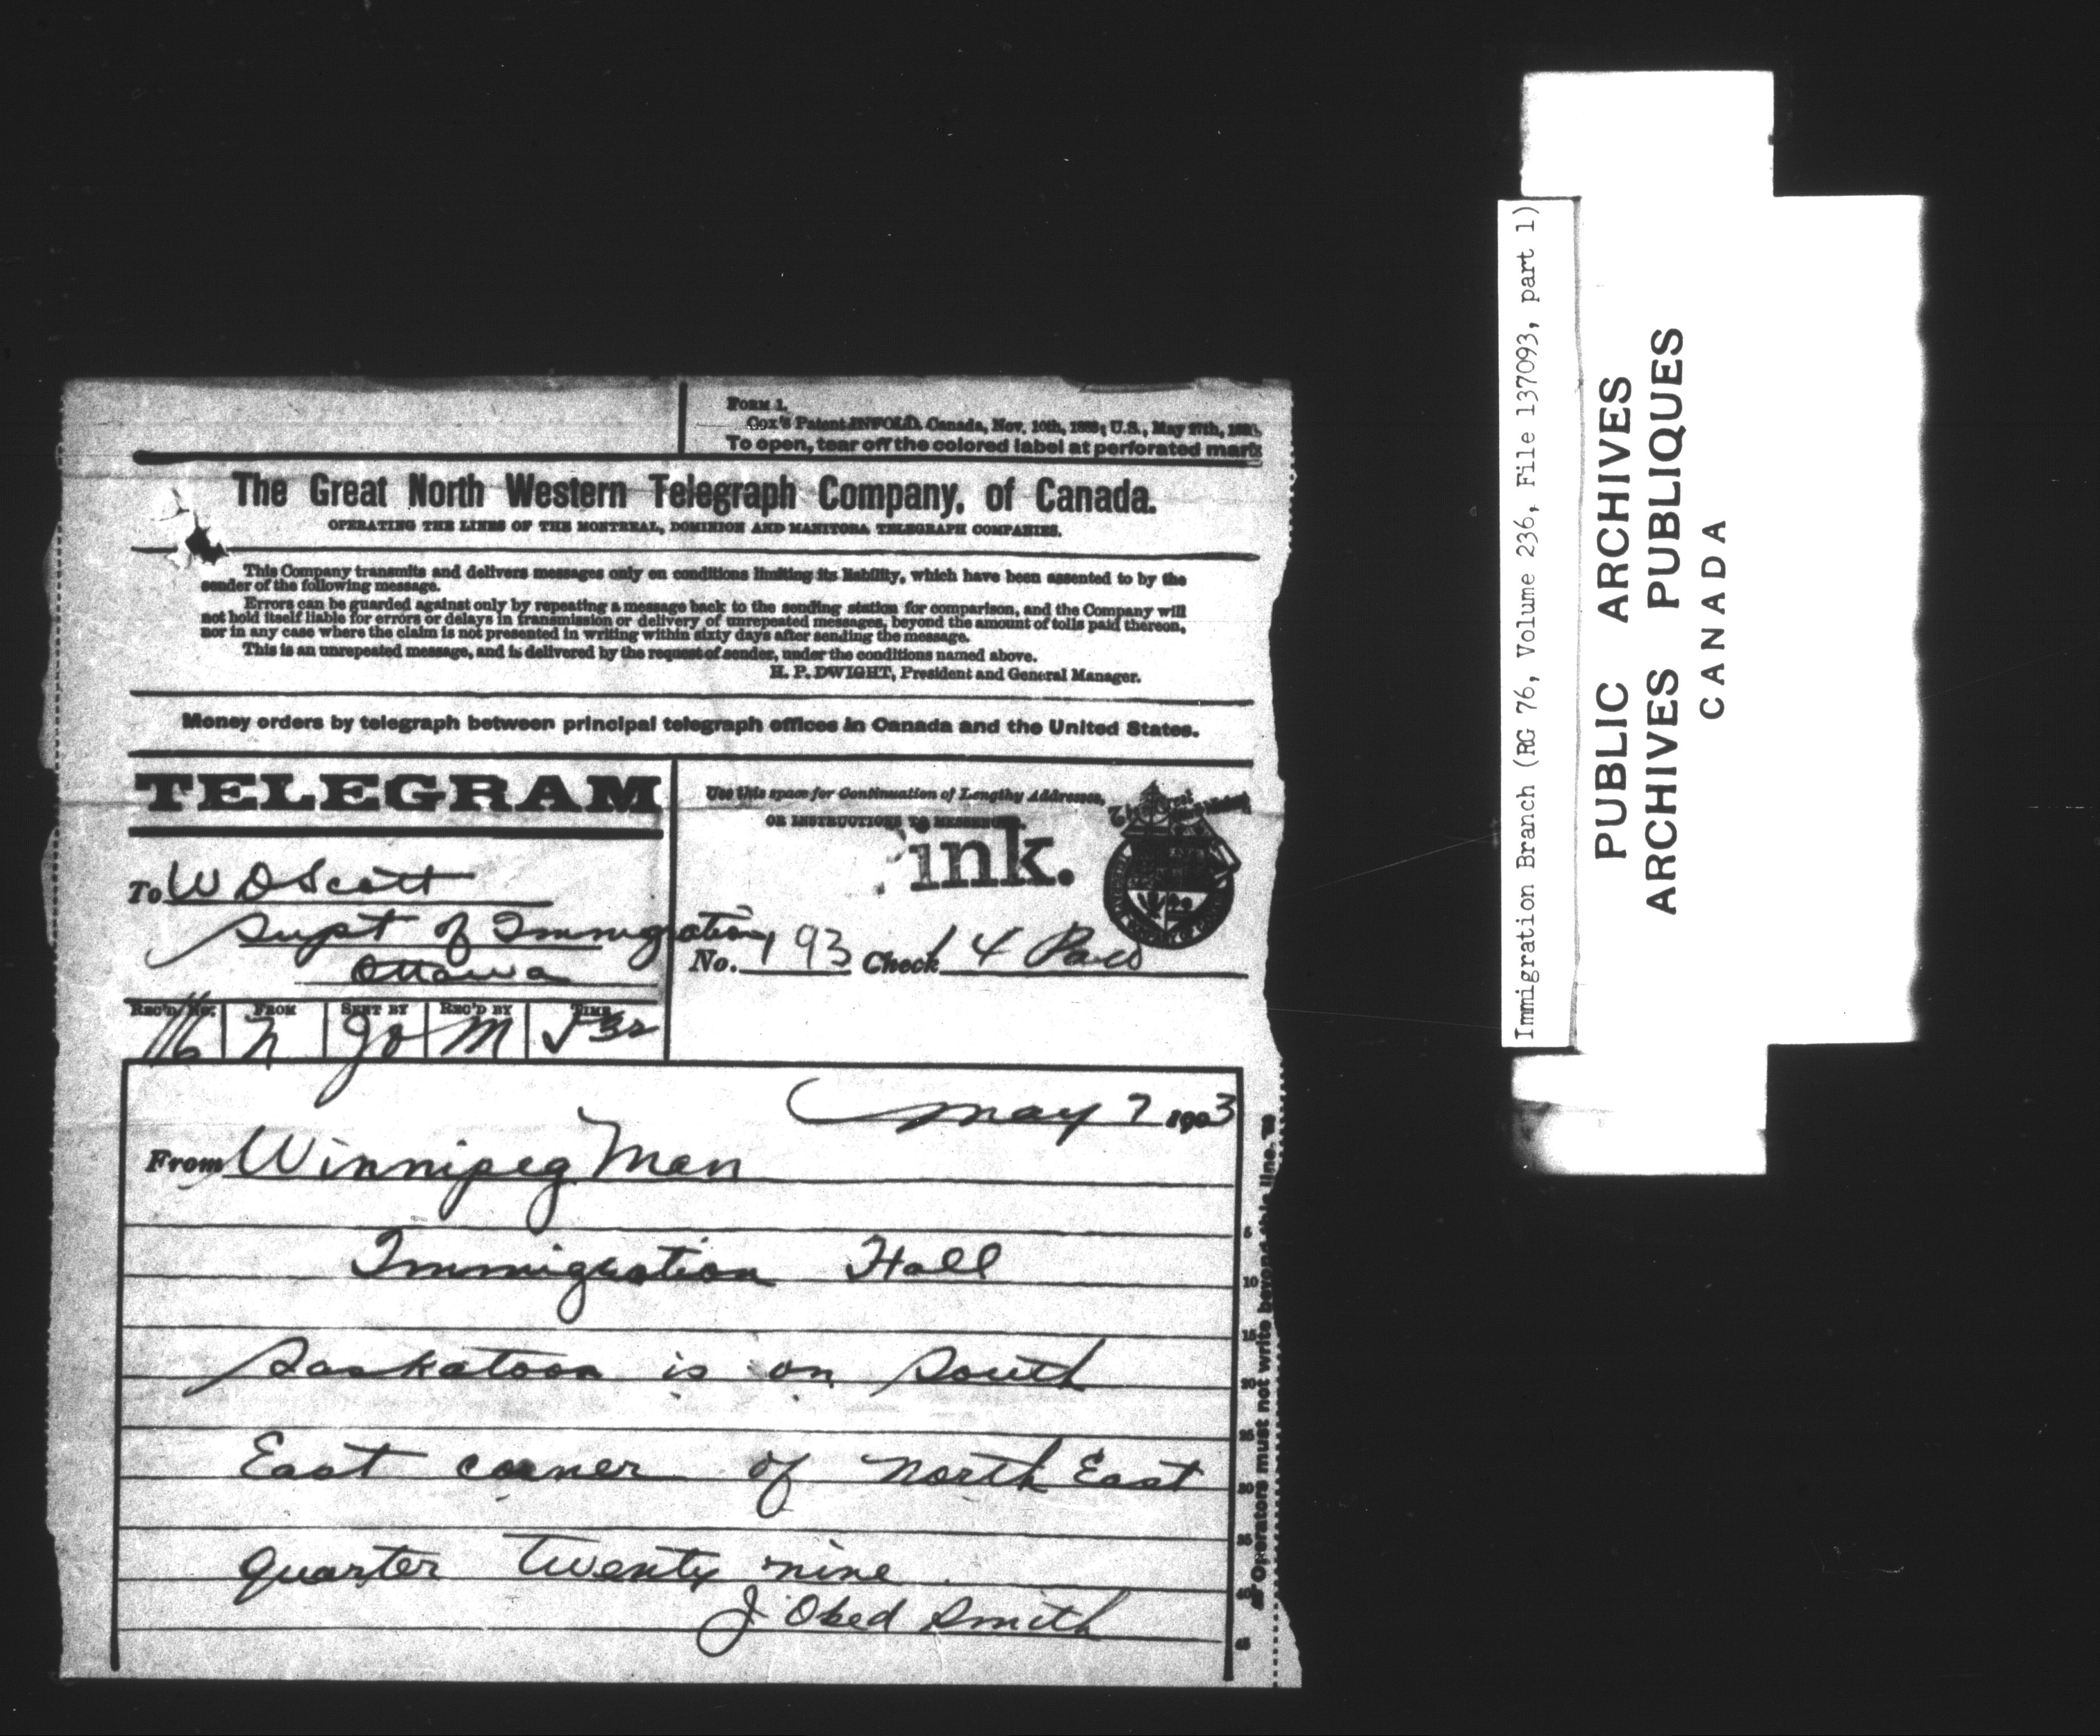 FORM 1.
Cox's Patent INFOLD. Canada, Nov. 10th, U.S., May
To open, tear off the colored label at perforated mark
The Great North Western Telegraph Company, of Canada.
OPERATING THE LINES OF THE MONTREAL, DOMINION AND MANITOBA TELEGRAPH COMPANIES.
This Company transmits and delivers messages only on conditions limiting its liability, which have been assented to by the
sender of the following message.
Errors can be guarded against only by repeating a message back to the sending station for comparison, and the Company will
not hold itself liable for errors or delays in transmission or delivery of unrepeated messages, beyond the amount of tolls paid thereon,
nor in any case where the claim is not presented in writing within sixty days after sending the message.
This is an unrepeated message, and is delivered by the request of sender, under the conditions named above.
H. P. DWIGHT, President and General Manager.
Money orders by telegraph between principal telegraph offices in Canada and the United States.
TELEGRAM
Use this space for Continuation of Lengthy Addresses,
OR INSTRUCTIONS TO MESSENGER
ink.
To W D Scott
Supt of Immigration
Ottawa
No. 193 Check 14 Paid
REC'D No. FROM SENT BY REC'D BY TIME
116 N JO M
May 7 1903
From Winnipeg Man
Immigration Hall
Saskatoon is on South
East corner of North East
quarter twenty nine
J Obed Smith
5
10
15
20
25
30
35
40
45
Operators must not write beyond this line.
Immigration Branch (RG 76, Volume 236, File 137093, part 1)
PUBLIC ARCHIVES
ARCHIVES PUBLIQUES
CANADA